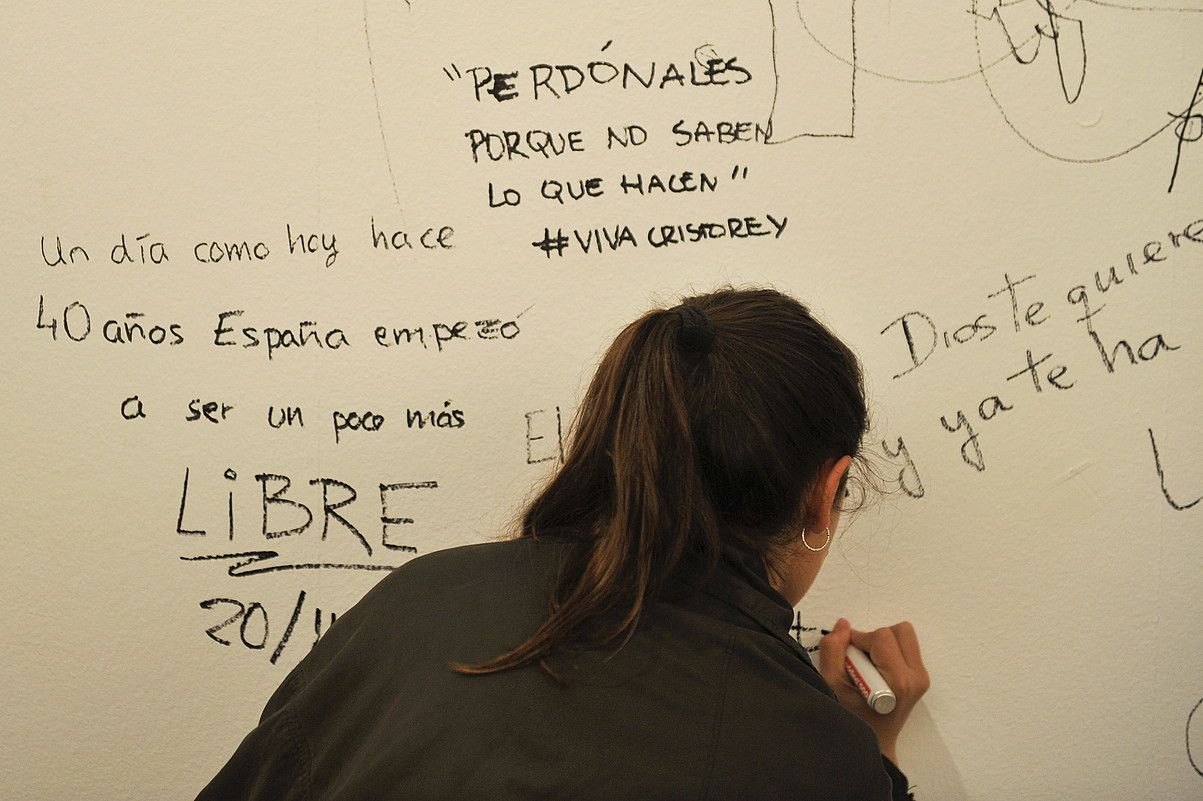 "PERDÓNALES
PORQUE NO SABEN
LO QUE HACEN"
#VIVACRISTOREY
Un día como hoy hace
40 años España empezó
a ser un poco más
LiBRE
20/11
El
Dios te quiere
y ya te ha